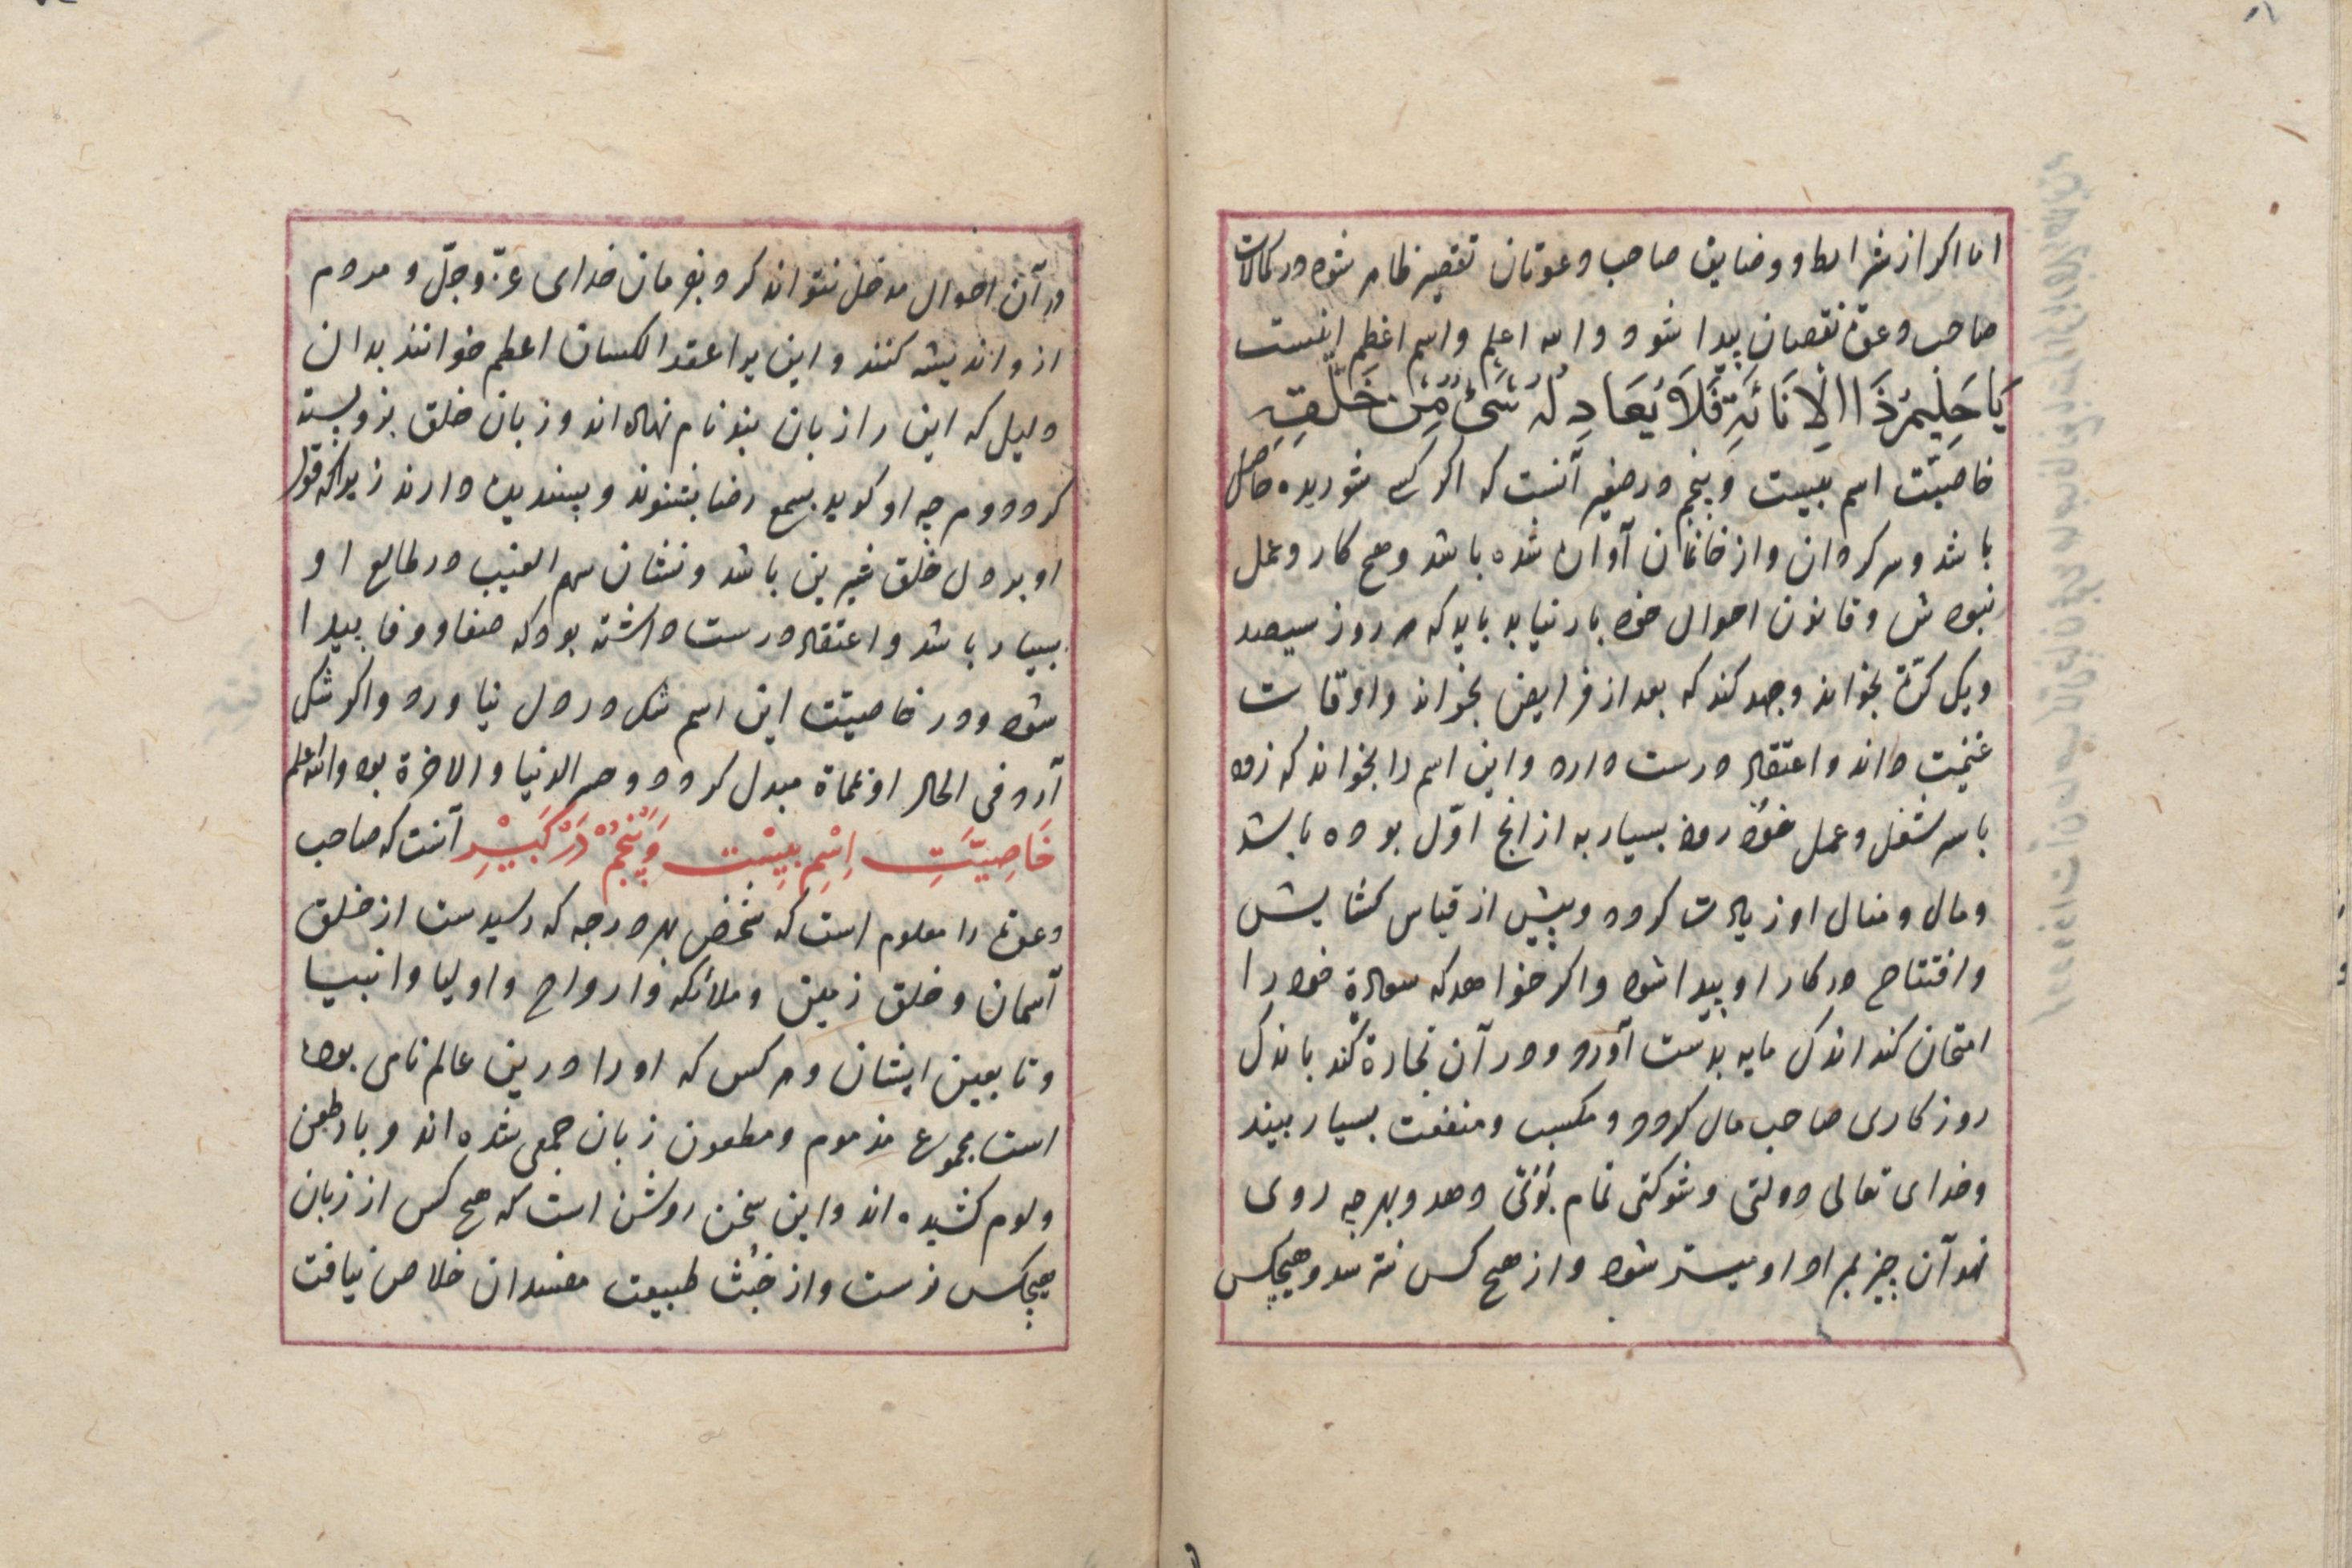 اما اکر از شرایط و وضایق صاحب دعوتان تقصیر ظاهر شود در کمالات
صاحب دعوة نقصان پیدا شود والله اعلم واسم اعظم اینست
یَا حَلِیمُ ذَا الاِنَائَةِ فَلاَ یُعَادِلُهُ شَیْءٌ مِنْ خَلْقِهِ
خاصیّت اسم بیست و پنجم در صغیر آنست که اکر کسی شوریده حاصل
باشد و سرکردان و از خانمان آواره شده باشد و هیچ کار و عمل
نبودش و قانون احوال خود باز نیابد باید که هر روز سیصد
و یک کرّة بخواند و جهد کند که بعد از فرایض بخواند و اوقات
غنیمت داند و اعتقاد درست دارد و این اسم را بخواند که زود
با سر شغل و عمل خود رود بسیار به از انج اوّل بوده باشد
و مال و منال او زیادت کردد و بیش از قیاس کشایش
و افتتاح در کار او پیدا شود و اکر خواهد که سعادة خود را
امتحان کند اندک مایه بدست آورد و در آن تجارة کند باندک
روزکاری صاحب مال کردد و مکسب و منفعت بسیار بیند
و خدای تعالی دولتی و شوکتی تمام دهد و بهرجه روی
نهد آن چیز بمراد او میسّر شود و از هیچ کس نترسد و هیچکس
در آن احوال مدخل نتواند کرد بفرمان خدای عزّ و جلّ و مردم
ازو اندیشه کنند و این را عقد الکسان اعظم خوانند بدان
دلیل که این را زبان بند نام نهاده اند و زبان خلق بزو بسته
کردد و هرجه او کوید بسمع رضا بشنوند و پسندیده دارند زیراکه قول
او بر دل خلق شیرین باشد و نشان سهم الغیب در طالع او
بسیار باشد و اعتقاد درست داشته بود که صفا و وفا پیدا
شود و در خاصیّت این اسم شک در دل نیاورد و اکر شک
آرد فی الحال او مبدل کردد و خسر الدنیا والاخرة بود والله اعلم
خَاصِیَّتِ اِسْمِ بِیسْت وَپَنْجُمْ دَرْ کَبِیْرِ آنست که صاحب
دعوة را معلوم است که شخص بهر درجه که رسیدست از خلق
آسمان و خلق زمین و ملائکه و ارواح و اولیا و انبیا
و تابعین ایشان و هر کس که او را درین عالم نامی بوده
است مجموع مذموم و مطعون زبان جمعی شده اند و بار طعن
و لوم کشیده اند و این سخن روشن است که هیچ کس از زبان
هیچکس نرست و از خبث طبیعت مفسدان خلاص نیافت